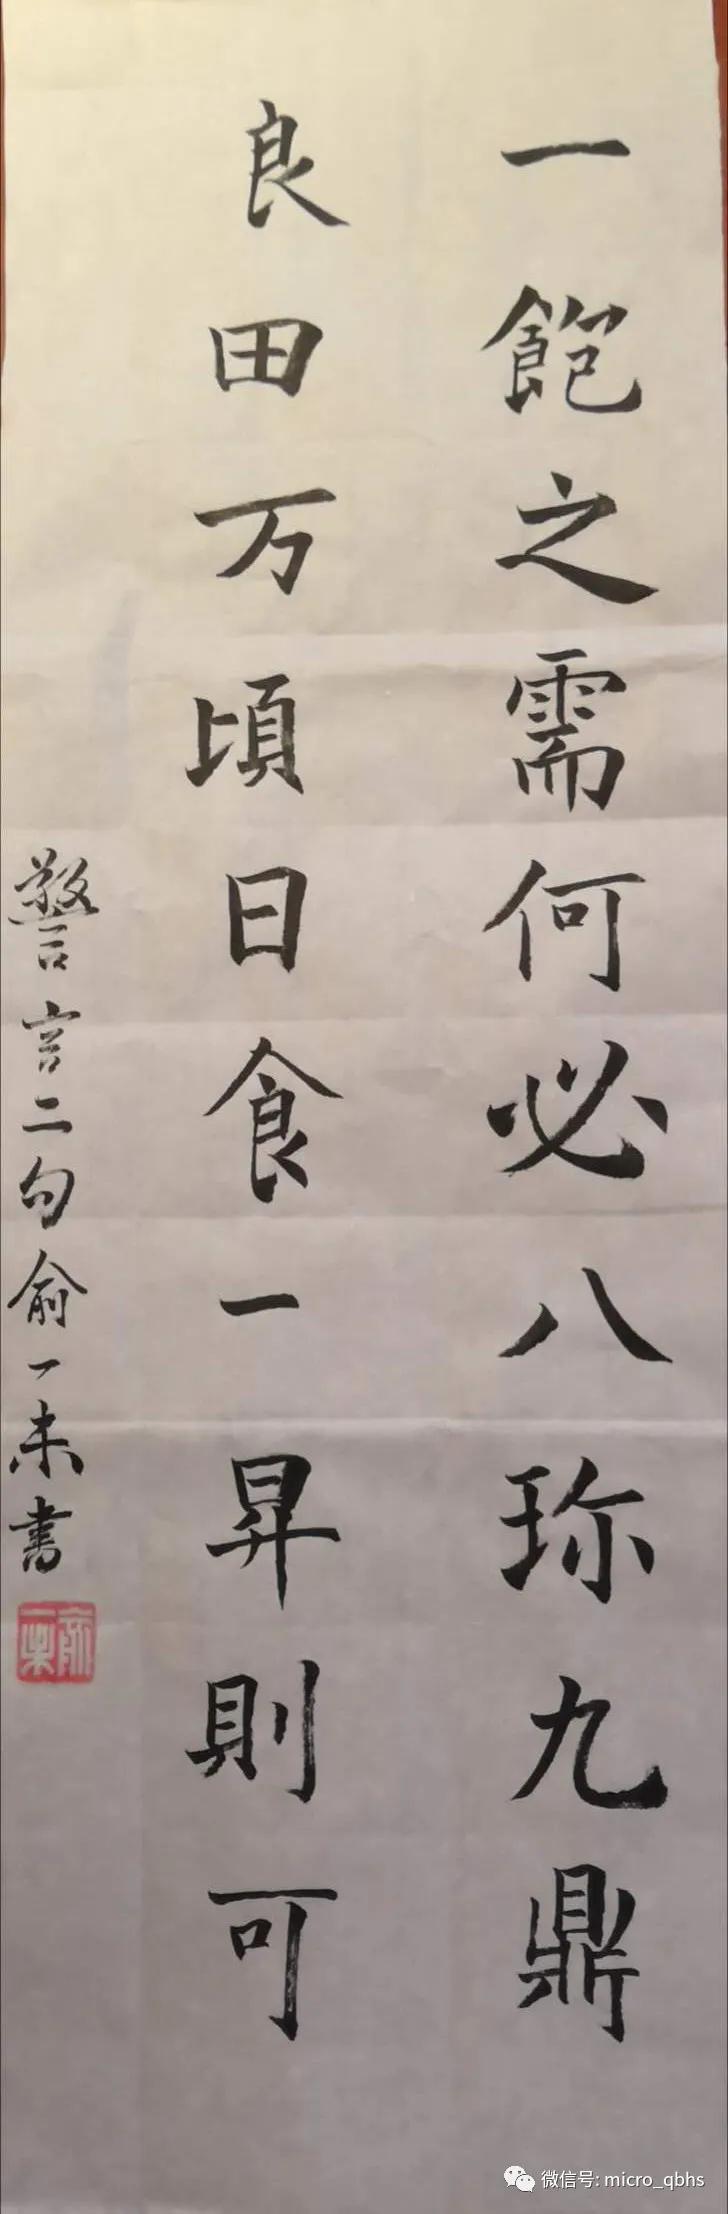 一飽之需何必八珎九鼎
良田万頃日食一昇則可
警言二句俞一未書
微信号: micro_qbhs